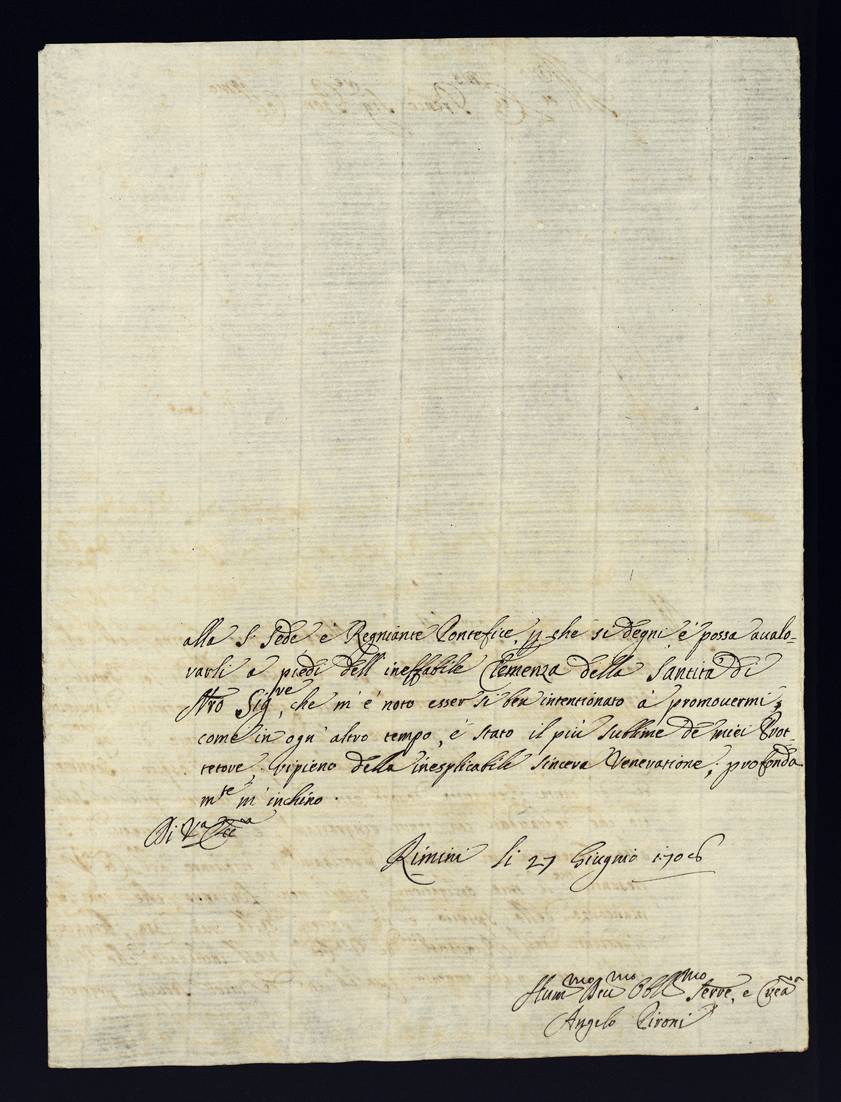 alla S. Sede è Regniante Pontefice, p che si degni è possa aualo-
rarli a piedi dell' ineffabile Clemenza della Santità di
Nro Sigre, che m' è noto esser si ben intentionato à promouermi;
come in ogn' altro tempo, è stato il più sublime de miei Prot-
tetore, ripieno della inesplicabile sincera Veneratione, profonda
mte m' inchino.
Di Va
Rimini li 27 Giugnio 1706
Hummo Deumo Obblmo Serre, e Crea
Angelo Pironi